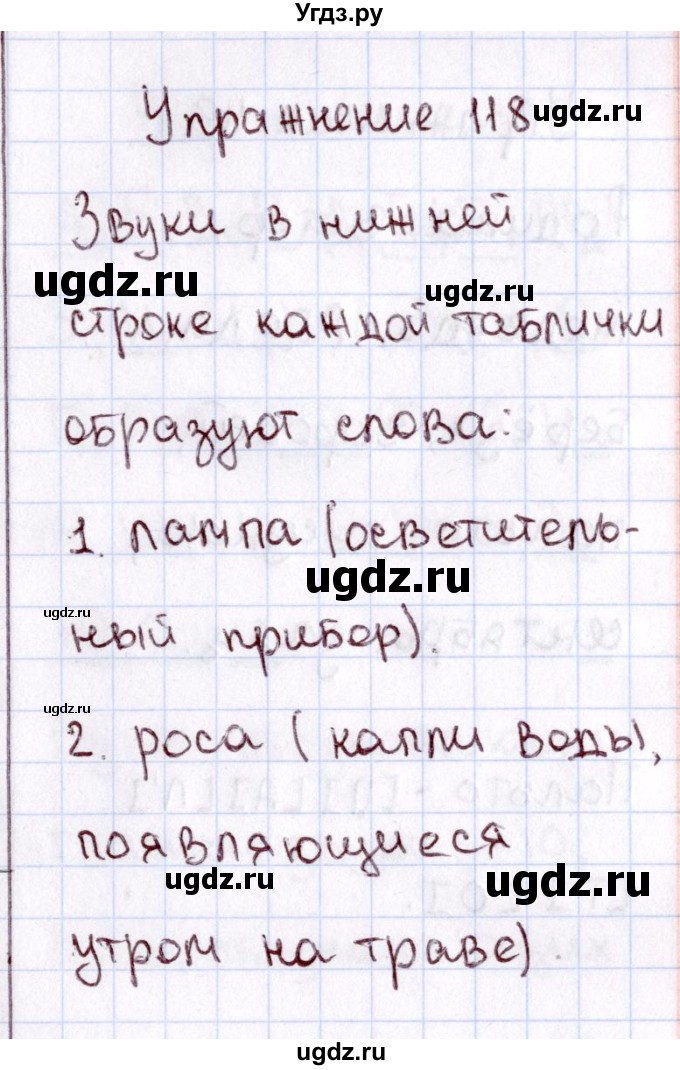 Угдз.ру
Упражнение 118
ugdz.ru
Звуки в нижней
ugdz.ru
ugdz.ru
строке каждой таблички
образуют слова:
1. лампа (осветитель-
ugdz.ru
ugdz.ru
ный прибор).
ugdz.ru
2. роса (капли воды,
появляющиеся
ugdz.ru
ugdz.ru
утром на траве).
ugdz.ru